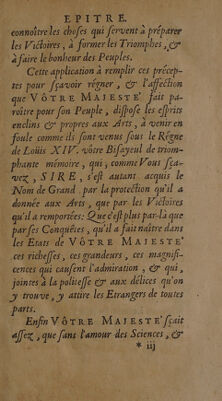 EPITRE.
connoître les choses qui servent à préparer
les Victoires, à former les Triomphes, &
à faire le bonheur des Peuples.
Cette application à remplir ces précep-
tes pour sçavoir régner, & l'affection
que VÔTRE MAJESTE' fait pa-
roître pour son Peuple, dispose les esprits
enclins & propres aux Arts, à venir en
foule comme ils sont venus sous le Régne
de Loüis XIV. vôtre Bisayeul de triom-
phante mémoire, qui, comme Vous sça-
vez, SIRE, s'est autant acquis le
Nom de Grand par la protection qu'il a
donnée aux Arts, que par les Victoires
qu'il a remportées: Que c'est plus par-là que
par ses Conquêtes, qu'il a fait naître dans
les Etats de VÔTRE MAJESTE'
ces richesses, ces grandeurs, ces magnifi-
cences qui causent l'admiration, & qui,
jointes à la politesse & aux délices qu'on
y trouve, y attire les Etrangers de toutes
parts.
Enfin VÔTRE MAJESTE' sçait
assez, que sans l'amour des Sciences, &
* iij